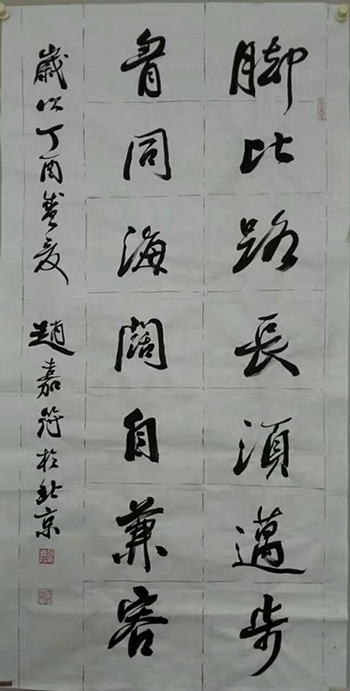 脚比路長須邁步
胷同海闊自兼容
歲次丁酉夏 趙嘉符於北京